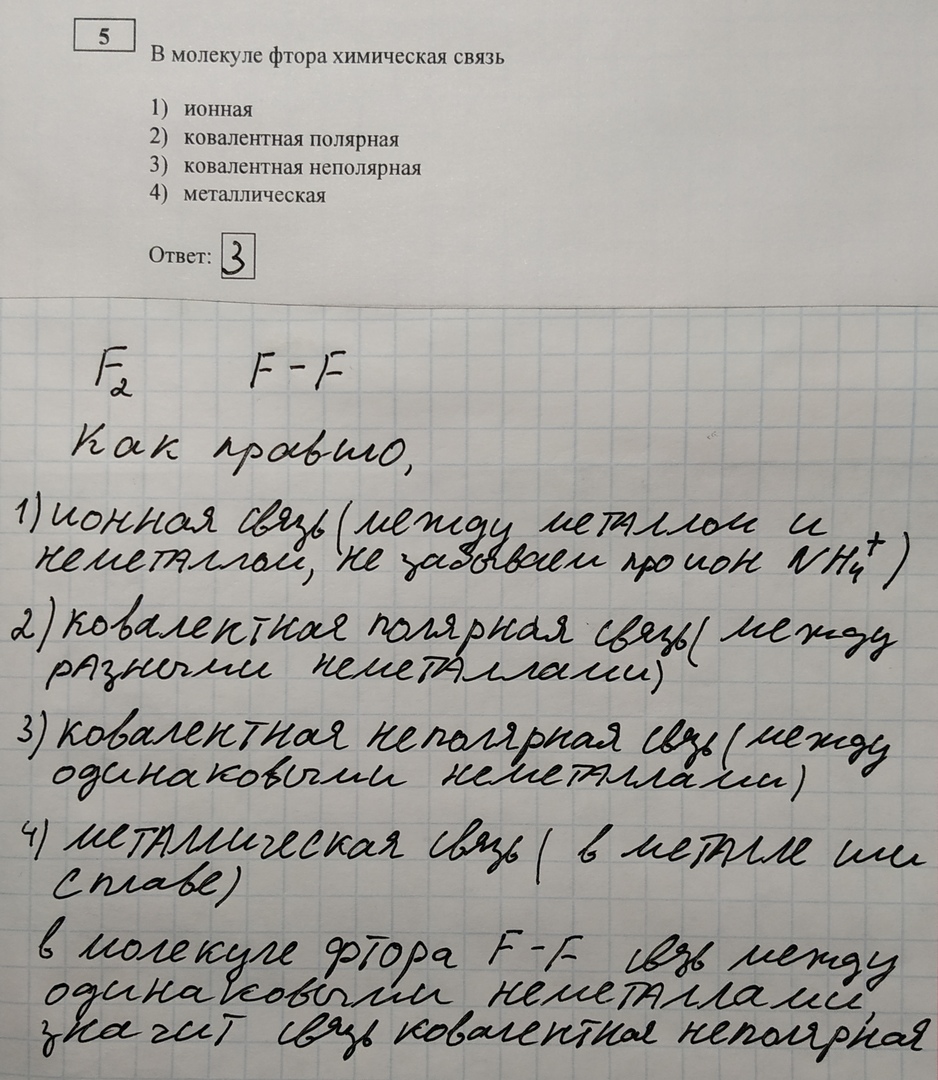 5
В молекуле фтора химическая связь
1) ионная
2) ковалентная полярная
3) ковалентная неполярная
4) металлическая
Ответ: 3
F₂ F-F
Как правило,
1) ионная связь (между металлом и
неметаллом, не забываем про ион NH₄⁺)
2) ковалентная полярная связь (между
разными неметаллами)
3) ковалентная неполярная связь (между
одинаковыми неметаллами)
4) металлическая связь ( в металле или
сплаве)
в молекуле фтора F-F связь между
одинаковыми неметаллами,
значит связь ковалентная неполярная